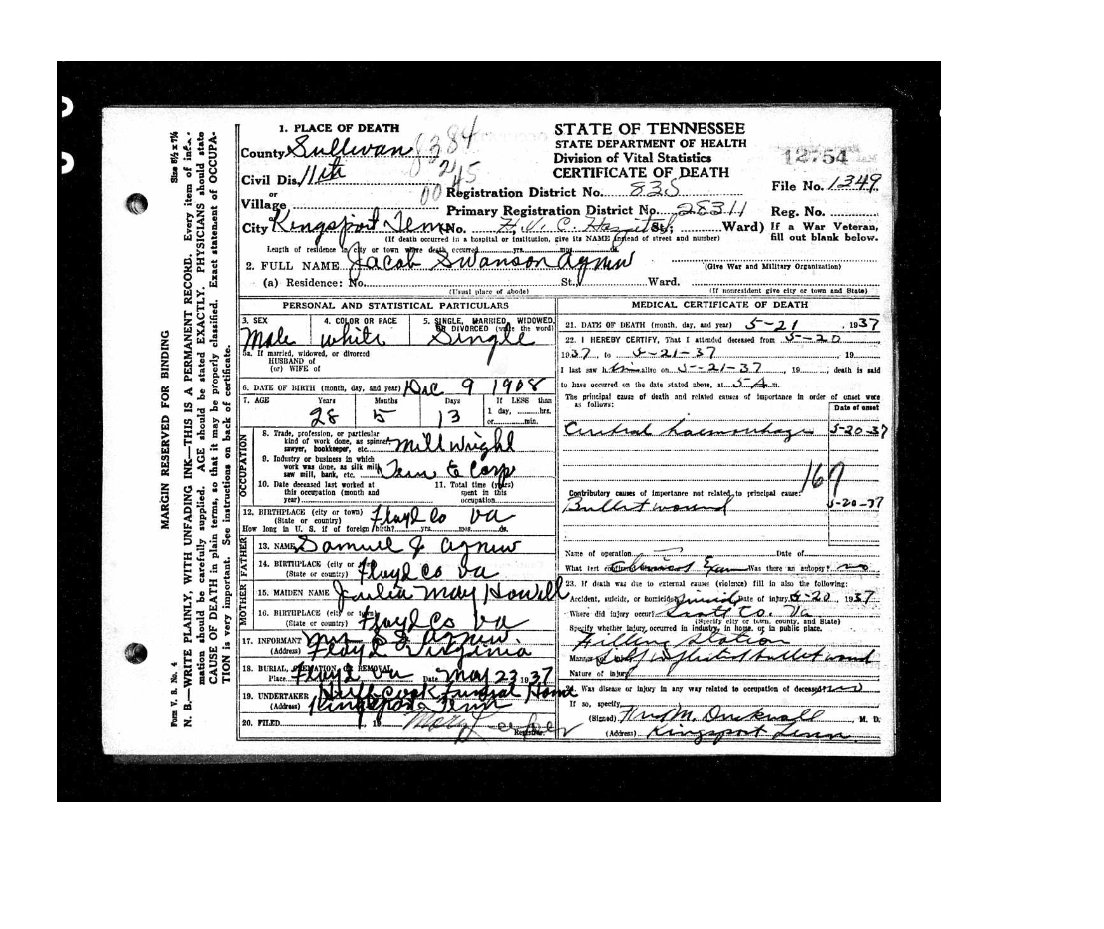 MARGIN RESERVED FOR BINDING
Size 8½ x 7¼
N. B.—WRITE PLAINLY, WITH UNFADING INK—THIS IS A PERMANENT RECORD. Every item of
mation should be carefully supplied. AGE should be stated EXACTLY. PHYSICIANS should state
CAUSE OF DEATH in plain terms, so that it may be properly classified. Exact statement of OCCUPA-
TION is very important. See instructions on back of certificate.
Form V. S. No. 4
1. PLACE OF DEATH
County Sullivan
Civil Dis. 11th
or
Village
City Kingsport Tenn No. H. V. C. Hospital St; Ward)
(If death occurred in a hospital or institution, give its NAME instead of street and number)
STATE OF TENNESSEE
STATE DEPARTMENT OF HEALTH
Division of Vital Statistics
CERTIFICATE OF DEATH
Registration District No. 835
Primary Registration District No. 28311
12754
File No. 1349
Reg. No.
If a War Veteran,
fill out blank below.
Length of residence in city or town where death occurred yrs. mos. ds.
2. FULL NAME Jacob Swanson Agnew
(Give War and Military Organization)
(a) Residence: No. St., Ward.
(Usual place of abode) (If nonresident give city or town and State)
PERSONAL AND STATISTICAL PARTICULARS
3. SEX Male
4. COLOR OR RACE white
5. SINGLE, MARRIED, WIDOWED, OR DIVORCED (write the word) Single
5a. If married, widowed, or divorced
HUSBAND of
(or) WIFE of
6. DATE OF BIRTH (month, day, and year) Dec 9 1908
7. AGE Years Months Days If LESS than
28 5 13 1 day, hrs.
or min.
OCCUPATION
8. Trade, profession, or particular
kind of work done, as spinner,
sawyer, bookkeeper, etc. Mill Wright
9. Industry or business in which
work was done, as silk mill,
saw mill, bank, etc. Tenn E Corp
10. Date deceased last worked at
this occupation (month and
year)
11. Total time (years)
spent in this
occupation
12. BIRTHPLACE (city or town) Floyd Co Va
(State or country)
How long in U. S. if of foreign birth? yrs. mos. ds.
FATHER
13. NAME Samuel J Agnew
14. BIRTHPLACE (city or town) Floyd Co Va
(State or country)
MOTHER
15. MAIDEN NAME Julia May Howell
16. BIRTHPLACE (city or town) Floyd Co Va
(State or country)
17. INFORMANT Mrs S J Agnew
(Address) Floyd Virginia
18. BURIAL, CREMATION, OR REMOVAL
Place Floyd Va Date May 23 1937
19. UNDERTAKER Cook Funeral Home
(Address) Kingsport Tenn
20. FILED 19
Registrar.
MEDICAL CERTIFICATE OF DEATH
21. DATE OF DEATH (month, day, and year) 5-21, 1937
22. I HEREBY CERTIFY, That I attended deceased from 5-20
1937, to 5-21-37 19
I last saw him alive on 5-21-37, 19, death is said
to have occurred on the date stated above, at 5 A m.
The principal cause of death and related causes of importance in order of onset were
as follows:
Date of onset
Cerebral haemorrhage 5-20-37
167
Contributory causes of importance not related to principal cause:
Bullet wound 5-20-37
Name of operation Date of
What test confirmed Clinical Exam Was there an autopsy? no
23. If death was due to external cause (violence) fill in also the following:
Accident, suicide, or homicide? Suicide Date of injury 5-20 1937
Where did injury occur? Scott Co. Va
(Specify city or town, county, and State)
Specify whether injury occurred in industry, in home, or in public place.
Filling Station
Manner of injury Self inflicted bullet wound
Nature of injury
24. Was disease or injury in any way related to occupation of deceased? no
If so, specify
(Signed) M. D.
(Address) Kingsport Tenn